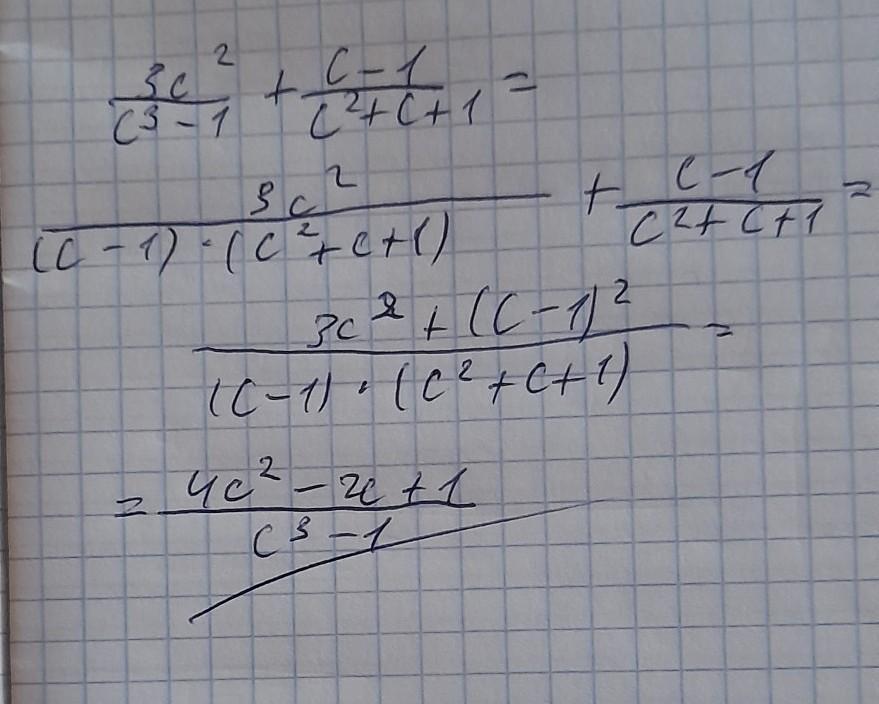 3c²/(c³-1) + (c-1)/(c²+c+1) =
3c²/((c-1)·(c²+c+1)) + (c-1)/(c²+c+1) =
(3c²+(c-1)²)/((c-1)·(c²+c+1)) =
= (4c²-2c+1)/(c³-1)